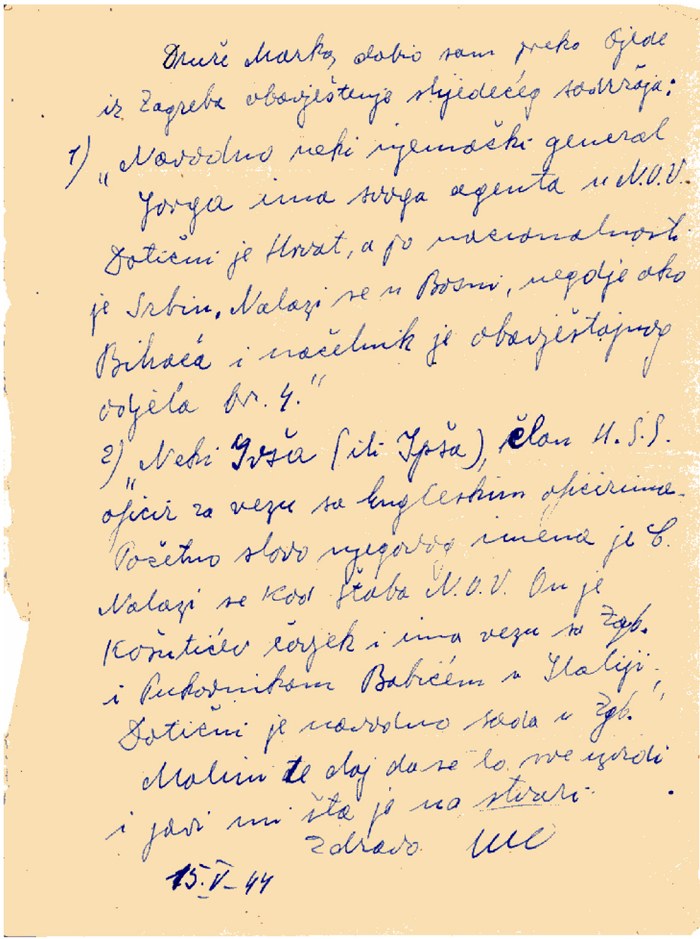 Druže Marko, dobio sam preko Ojede
iz Zagreba obavještenje slijedećeg sadržaja:
1) „Navodno neki njemački general
Jorga ima svoga agenta u N.O.V.
Dotični je Hrvat, a po nacionalnosti
je Srbin. Nalazi se u Bosni, negdje oko
Bihaća i načelnik je obavještajnog
odjela br. 4."
2) „Neki Ivša (ili Ipša), član H.S.S.
oficir za vezu sa Engleskim oficirima.
Početno slovo njegovog imena je C.
Nalazi se kod Štaba N.O.V. On je
Košutićev čovjek i ima vezu sa Zgb.
i Pukovnikom Babićem u Italiji.
Dotični je navodno sada u Zgb."
Molim te daj da se to sve izvidi
i javi mi šta je na stvari.
Zdravo
15.V-44